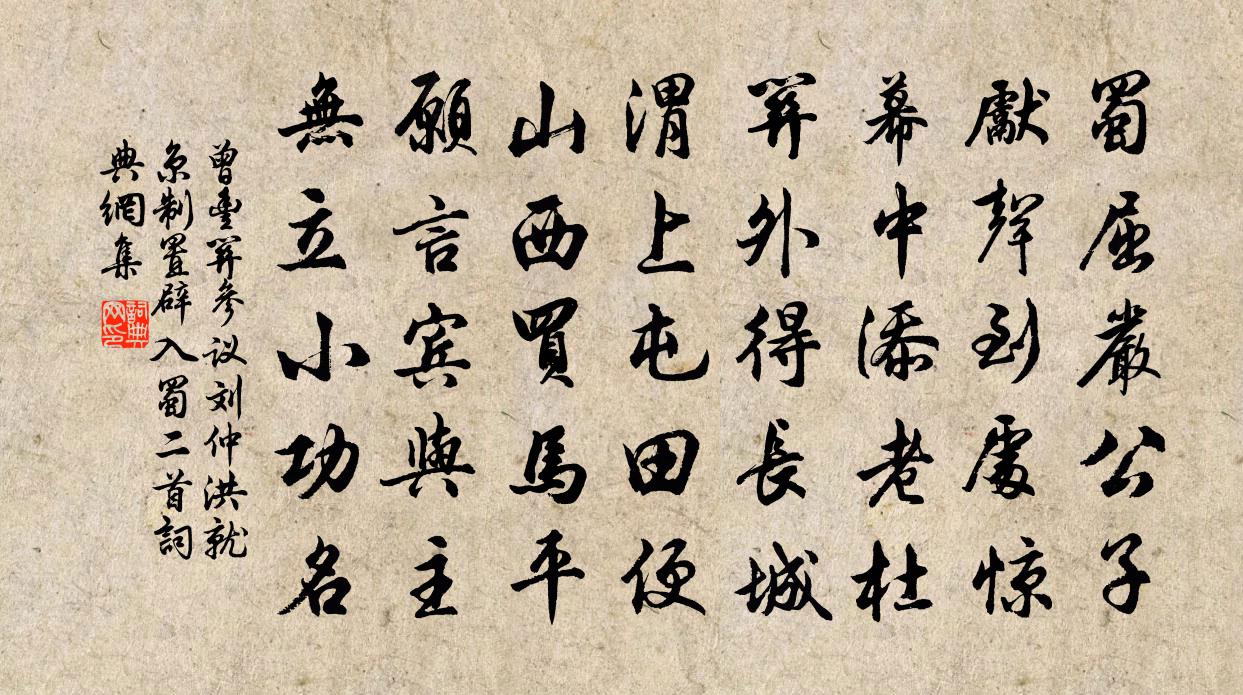 蜀屈嚴公子
獻聲到處惊
幕中添老杜
關外得長城
渭上屯田便
山西買馬平
願言賓與主
無立小功名
曾豐關參议刘仲洪就
京制置辟入蜀二首詞
典網集
詞典网印